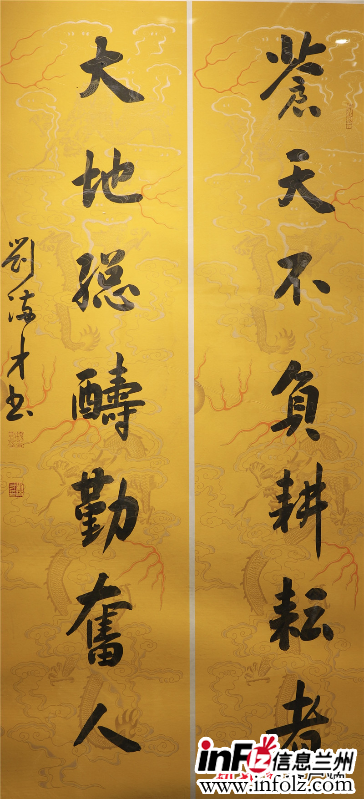 蒼天不負耕耘者
大地總醻勤奮人
劉 才书
信息兰州
www.infolz.com